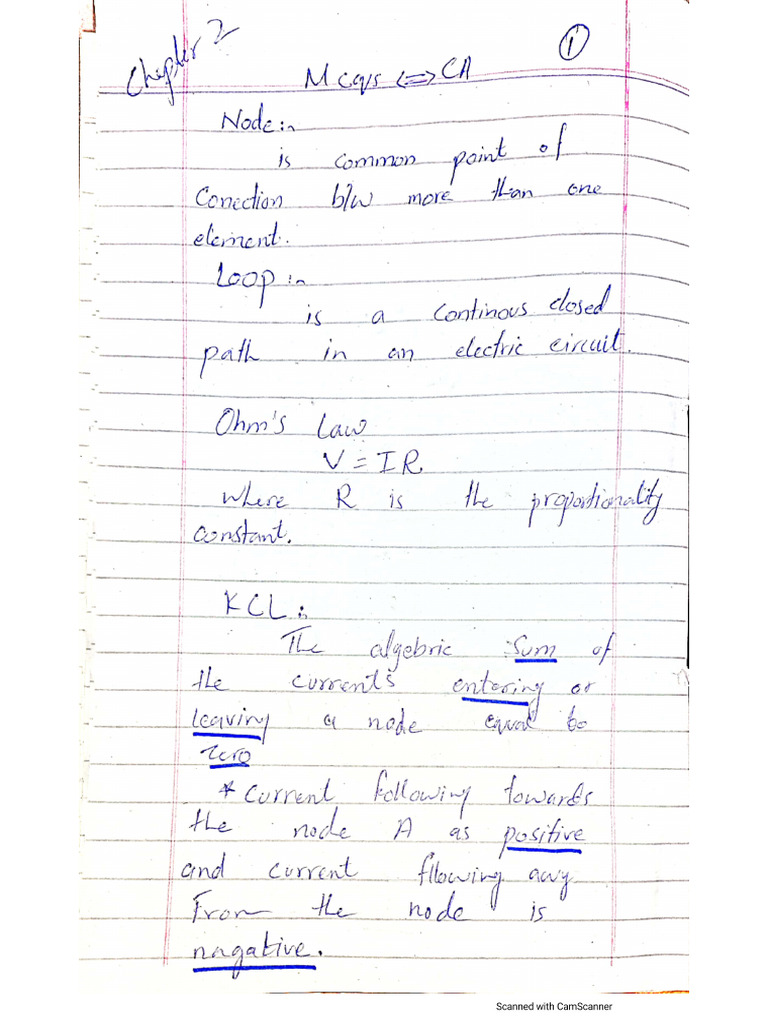 Chapter 2
①
Mcqs <=> CA
Node:-
is common point of
Conection b/w more than one
element.
Loop:-
is a continous closed
path in an electric circuit.
Ohm's Law
V = IR
where R is the proportionality
constant.
KCL:-
The algebric sum of
the currents entering or
leaving a node equal to
zero
* Current following towards
the node A as positive
and current fllowing awy
From the node is
nagative.
Scanned with CamScanner